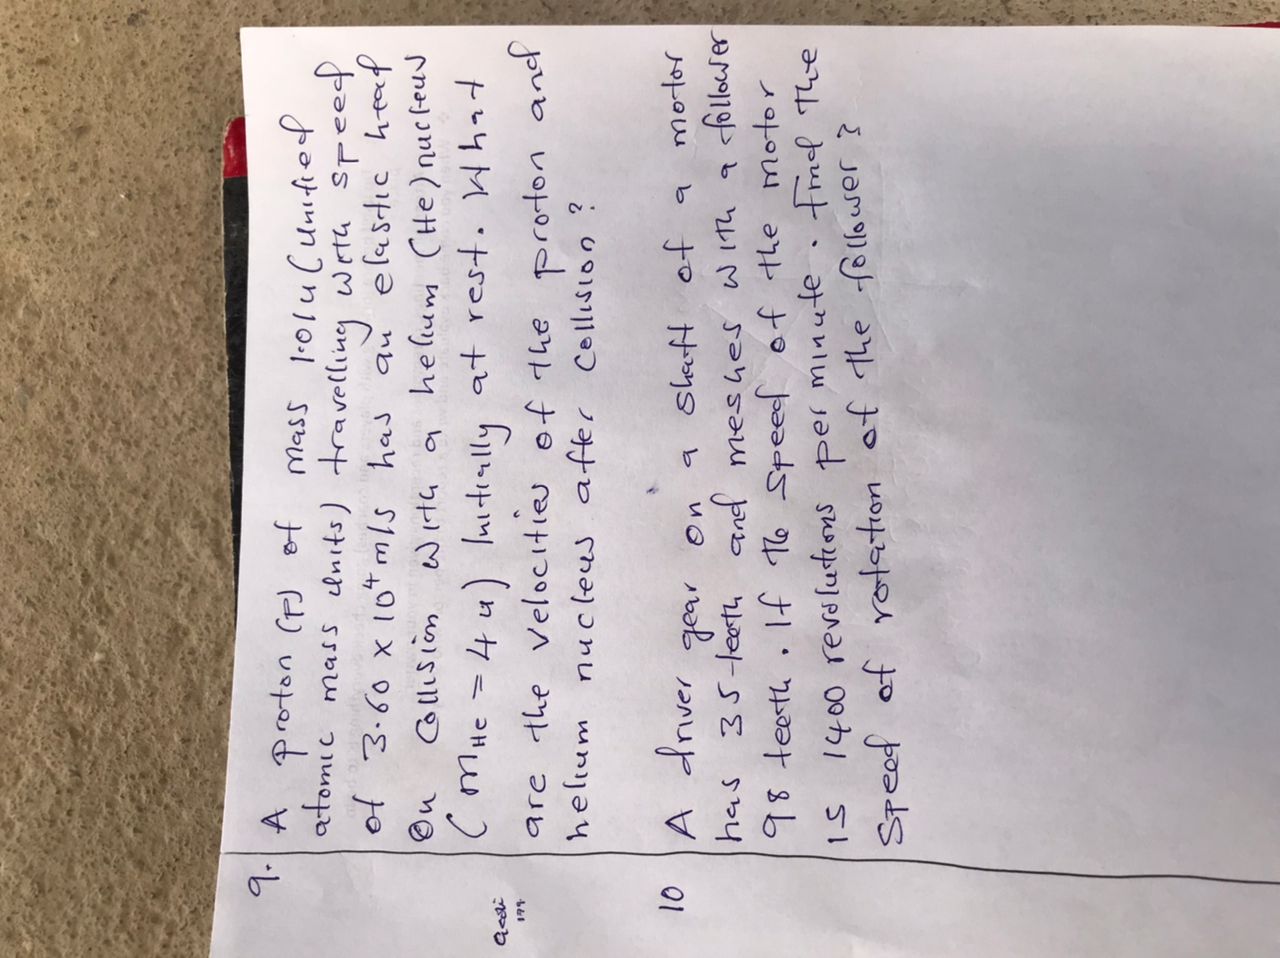 9. A proton (P) of mass 1.01u (unified
atomic mass units) travelling with speed
of 3.60 x 10⁴ m/s has an elastic head
on collision with a helium (He) nucleus
(mHe = 4 u) initially at rest. What
are the velocities of the proton and
helium nucleus after collision?
10 A driver gear on a shaft of a motor
has 35 teeth and meshes with a follower
98 teeth. If the speed of the motor
is 1400 revolutions per minute. Find the
speed of rotation of the follower?